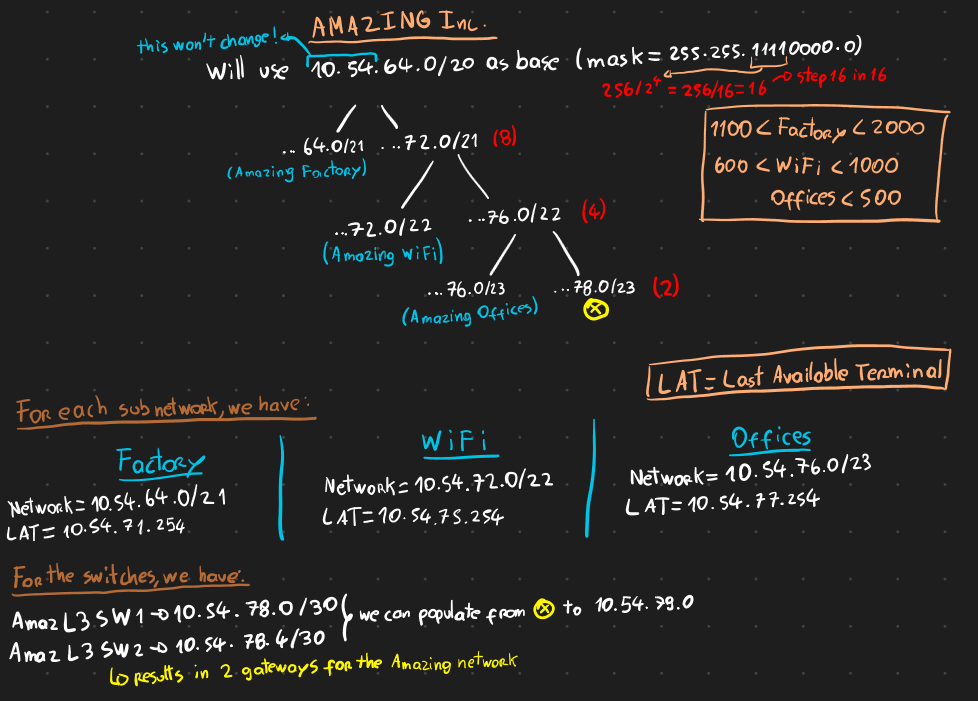 AMAZING Inc.
this won't change!
Will use 10.54.64.0/20 as base (mask = 255.255.11110000.0)
256/2⁴ = 256/16 = 16 → step 16 in 16
... 64.0/21 ...72.0/21 (8)
(Amazing Factory)
1100 < Factory < 2000
600 < WiFi < 1000
Offices < 500
...72.0/22 ...76.0/22 (4)
(Amazing WiFi)
...76.0/23 ...78.0/23 (2)
(Amazing Offices) ⊗
LAT = Last Available Terminal
For each subnetwork, we have:
Factory
Network = 10.54.64.0/21
LAT = 10.54.71.254
WiFi
Network = 10.54.72.0/22
LAT = 10.54.75.254
Offices
Network = 10.54.76.0/23
LAT = 10.54.77.254
For the switches, we have:
Amaz L3 SW1 → 10.54.78.0/30
Amaz L3 SW2 → 10.54.78.4/30
we can populate from ⊗ to 10.54.79.0
↳ results in 2 gateways for the Amazing network